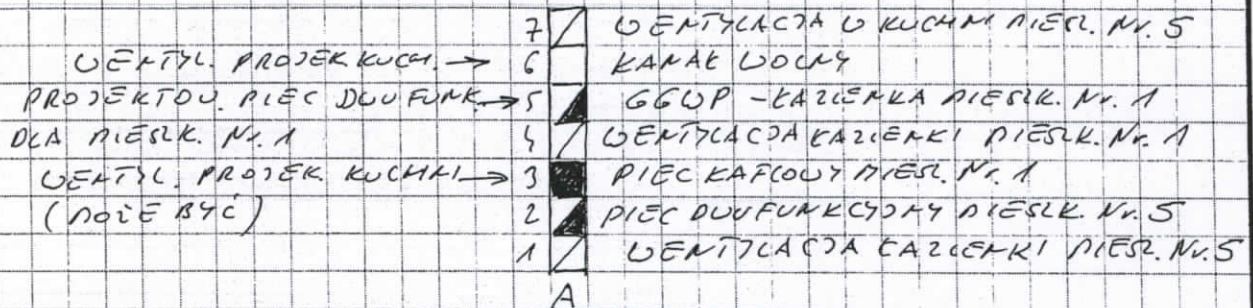 7 WENTYLACJA W KUCHNI MIESZ. Nr. 5
WENTYL. PROJEK KUCH. → 6 KANAŁ WOLNY
PROJEKTOW. PIEC DWUFUNK. → 5 GGWP - ŁAZIENKA MIESZK. Nr. 1
DLA MIESZK. Nr. 1 4 WENTYLACJA ŁAZIENKI MIESZK. Nr. 1
WENTYL. PROJEK. KUCHNI → 3 PIEC KAFLOWY MIESZ. Nr. 1
(MOŻE BYĆ) 2 PIEC DWUFUNKCYJNY MIESZK. Nr. 5
1 WENTYLACJA ŁAZIENKI MIESZ. Nr. 5
A